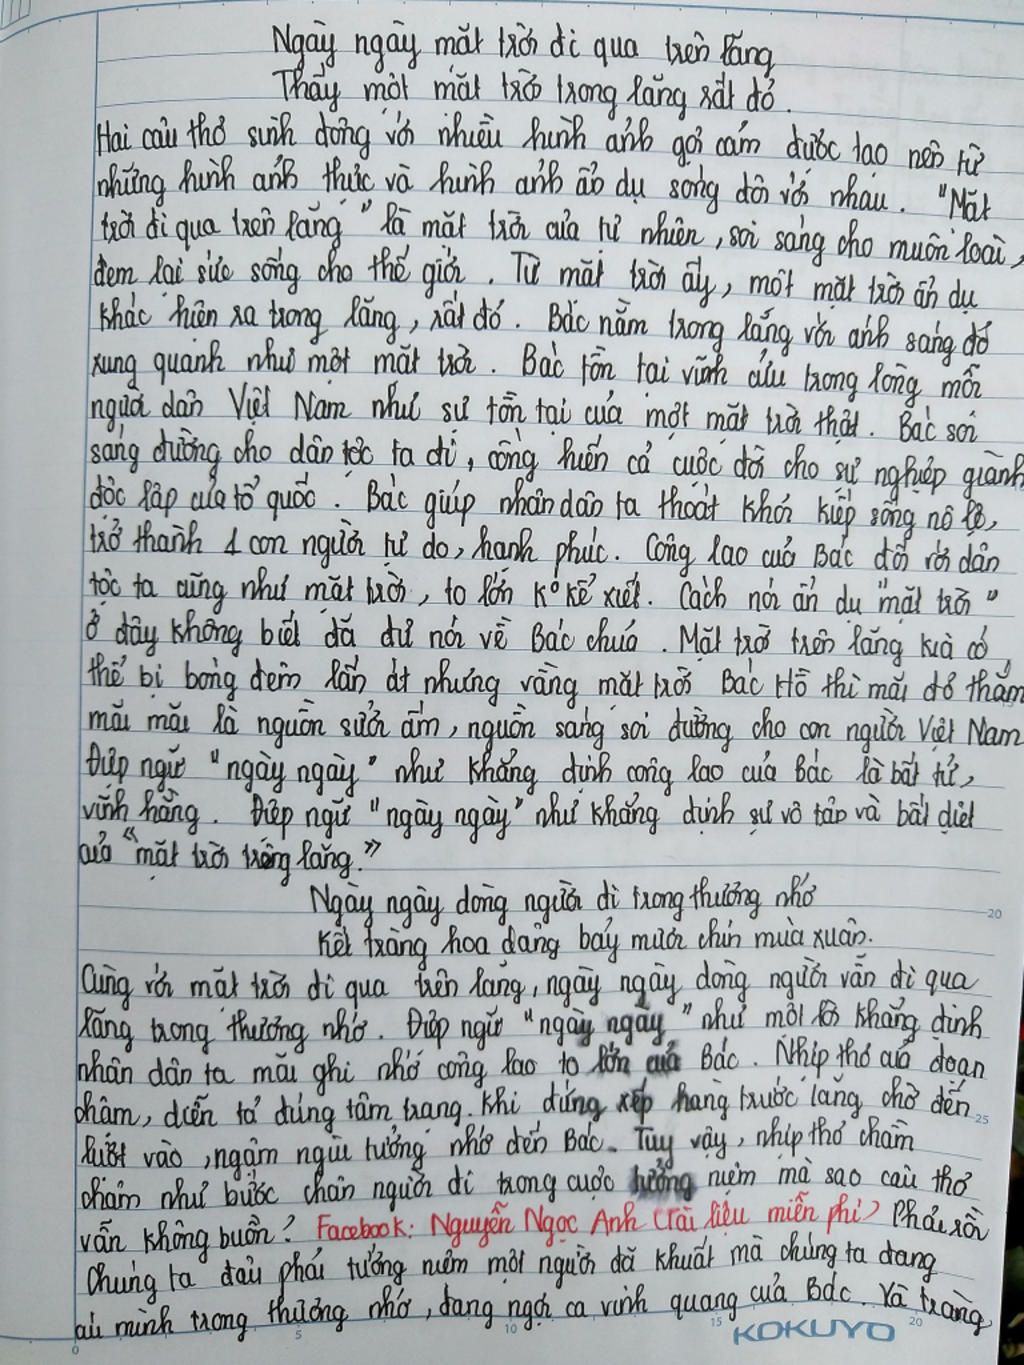 Ngày ngày mặt trời đi qua trên lăng
Thấy một mặt trời trong lăng rất đỏ.
Hai câu thơ sinh động với nhiều hình ảnh gợi cảm được tạo nên từ
những hình ảnh thực và hình ảnh ẩn dụ sóng đôi với nhau. "Mặt
trời đi qua trên lăng" là mặt trời của tự nhiên, soi sáng cho muôn loài,
đem lại sức sống cho thế giới. Từ mặt trời ấy, một mặt trời ẩn dụ
khác hiện ra trong lăng, rất đỏ. Bác nằm trong lăng với ánh sáng đỏ
xung quanh như một mặt trời. Bác tồn tại vĩnh cửu trong lòng mỗi
người dân Việt Nam như sự tồn tại của một mặt trời thật. Bác soi
sáng đường cho dân tộc ta đi, cống hiến cả cuộc đời cho sự nghiệp giành
độc lập của tổ quốc. Bác giúp nhân dân ta thoát khỏi kiếp sống nô lệ,
trở thành 1 con người tự do, hạnh phúc. Công lao của Bác đối với dân
tộc ta cũng như mặt trời, to lớn k° kể xiết. Cách nói ẩn dụ "mặt trời"
ở đây không biết đã đủ nói về Bác chưa. Mặt trời trên lăng kia có
thể bị bóng đêm lấn át nhưng vầng mặt trời Bác Hồ thì mãi đỏ thắm
mãi mãi là nguồn sưởi ấm, nguồn sáng soi đường cho con người Việt Nam
Điệp ngữ "ngày ngày" như khẳng định công lao của Bác là bất tử,
vĩnh hằng. Điệp ngữ "ngày ngày" như khẳng định sự vô tận và bất diệt
của "mặt trời trong lăng."
Ngày ngày dòng người đi trong thương nhớ
Kết tràng hoa dâng bảy mươi chín mùa xuân.
Cùng với mặt trời đi qua trên lăng, ngày ngày dòng người vẫn đi qua
lăng trong thương nhớ. Điệp ngữ "ngày ngày" như một lời khẳng định
nhân dân ta mãi ghi nhớ công lao to lớn của Bác. Nhịp thơ của đoạn
chậm, diễn tả đúng tâm trạng khi đứng xếp hàng trước lăng chờ đến
lượt vào, ngậm ngùi tưởng nhớ đến Bác. Tuy vậy, nhịp thơ chầm
chậm như bước chân người đi trong cuộc tưởng niệm mà sao câu thơ
vẫn không buồn? Facebook: Nguyễn Ngọc Anh (Tài liệu miễn phí) Phải rồi
chúng ta đâu phải tưởng niệm một người đã khuất mà chúng ta đang
đi mình trong thương nhớ, đang ngợi ca vinh quang của Bác. Và tràng
20
25
0
5
10
15
20
KOKUYO